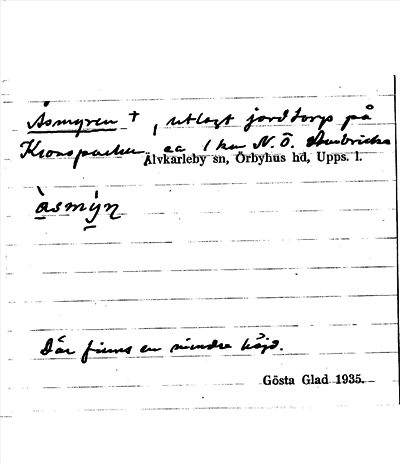 Åsmyren +, utlagt jordtorp på
Kronoparken ca 1 km N. Ö.
Älvkarleby sn, Örbyhus hd, Upps. l.
àsmýn
Där finns en mindre höjd.
Gösta Glad 1935.